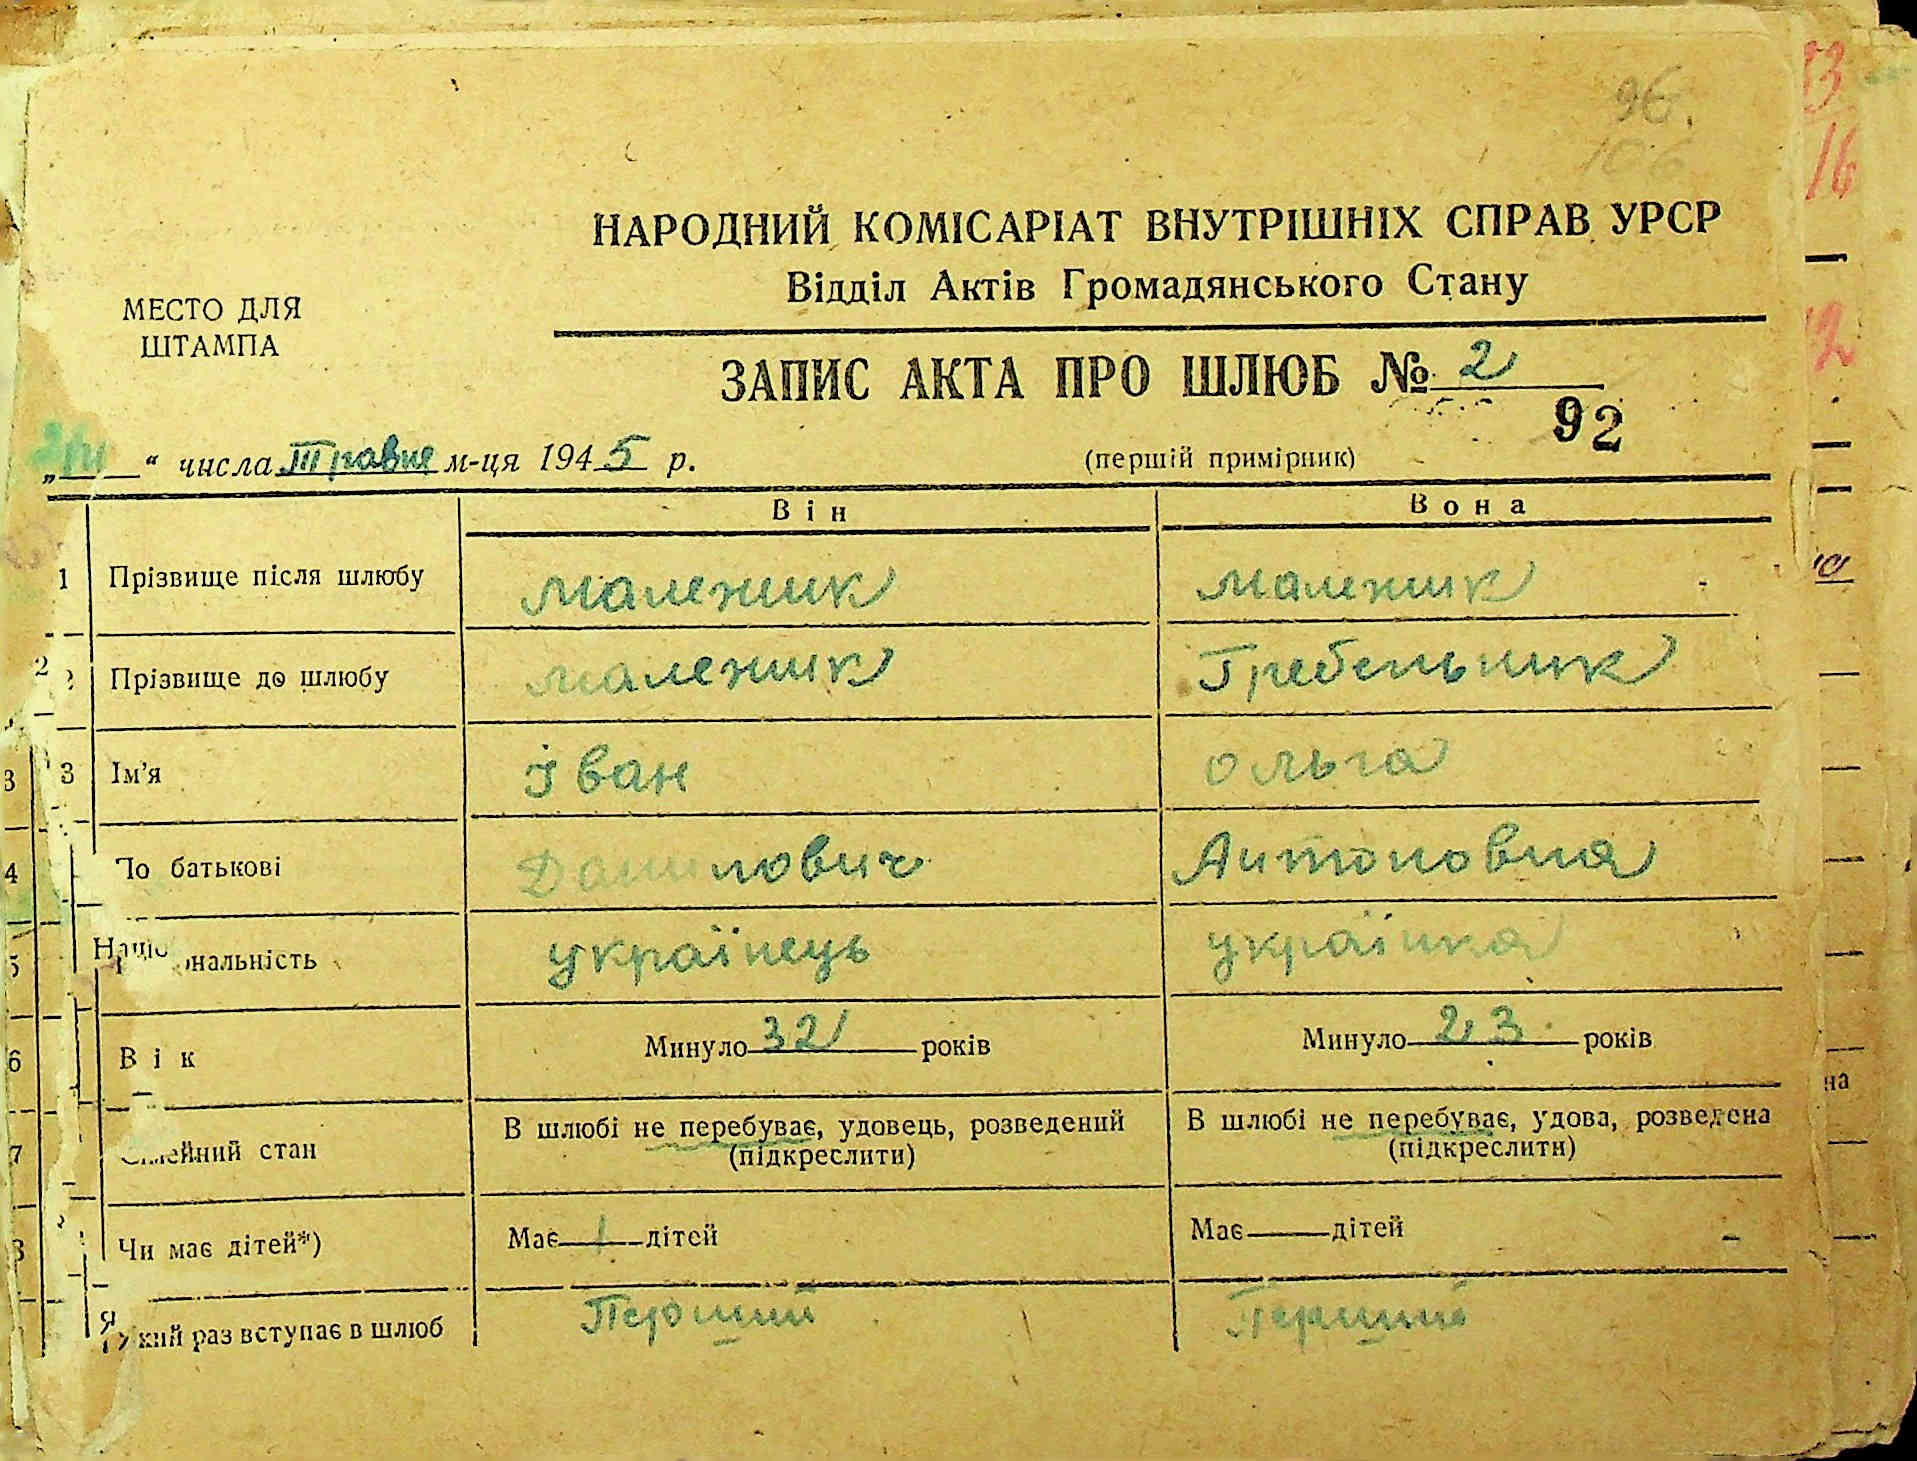 96.
106
НАРОДНИЙ КОМІСАРІАТ ВНУТРІШНІХ СПРАВ УРСР
Відділ Актів Громадянського Стану
МЕСТО ДЛЯ
ШТАМПА
ЗАПИС АКТА ПРО ШЛЮБ № 2
92
„ “ числа Травня м-ця 1945 р.
(першій примірник)
Він Вона
1 Прізвище після шлюбу Маленик Маленик
2 Прізвище до шлюбу Маленик Гребельник
3 Ім'я Іван Ольга
4 По батькові Данилович Антоновна
5 Національність українець українка
6 Вік Минуло 32 років Минуло 23 років
7 Сімейний стан В шлюбі не перебуває, удовець, розведений В шлюбі не перебуває, удова, розведена
(підкреслити) (підкреслити)
Чи має дітей*) Має 1 дітей Має — дітей
Який раз вступає в шлюб Перший Перший